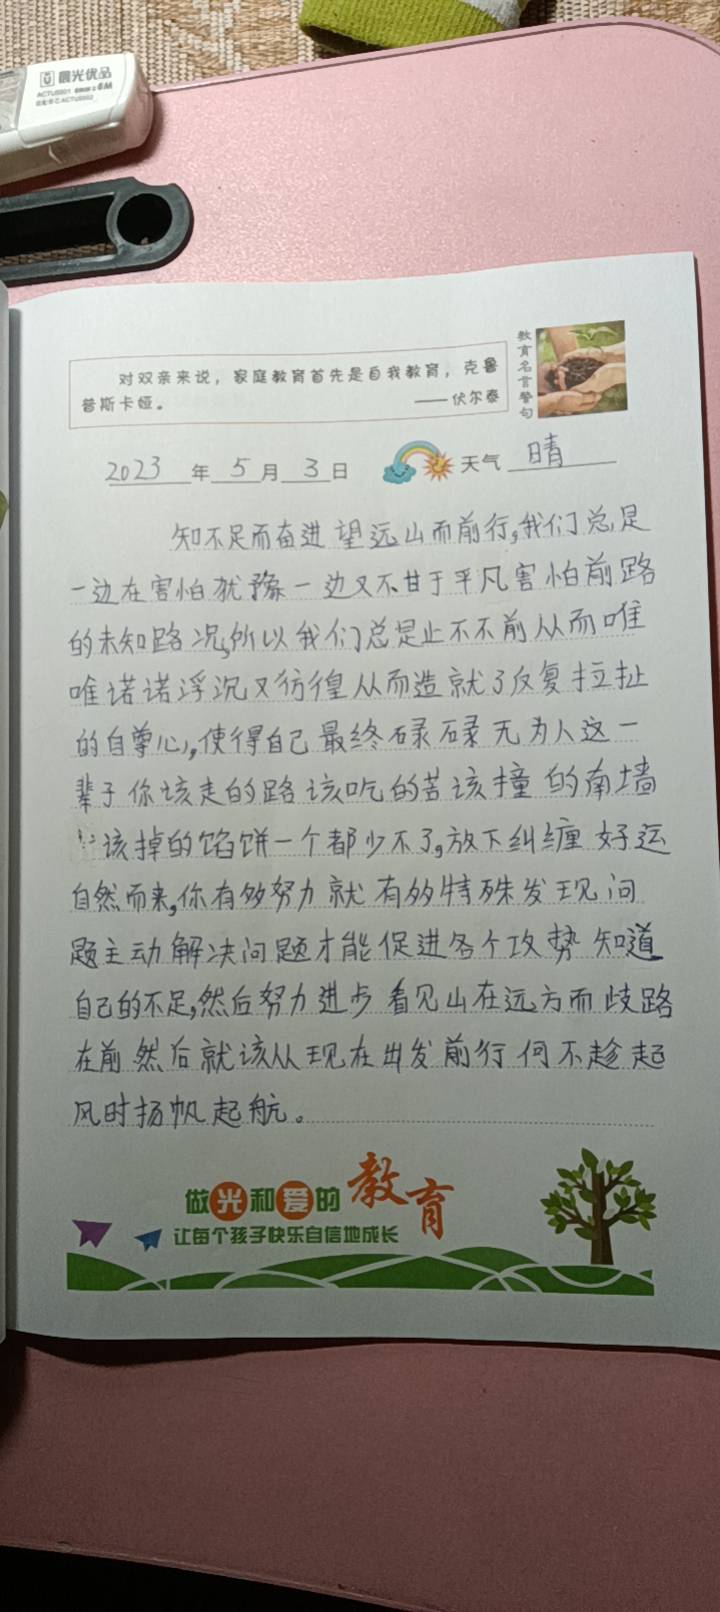 晨光优品
对双亲来说，家庭教育首先是自我教育，克鲁
普斯卡娅。
——伏尔泰
教育名言警句
2023年5月3日 天气 晴
知不足而奋进 望远山而前行,我们总是
一边在害怕犹豫一边又不甘于平凡害怕前路
的未知路况,所以我们总是止不不前从而唯
唯诺诺浮沉又彷徨从而造就了反复拉扯
的自尊心,使得自己最终碌碌无为人这一
辈子你该走的路该吃的苦该撞的南墙
该掉的馅饼一个都少不了,放下纠缠 好运
自然而来,你有多努力就有多特殊发现问
题主动解决问题才能促进各个攻势 知道
自己的不足,然后努力进步 看见山在远方而歧路
在前然后就该从现在出发前行何不趁起
风时扬帆起航。
做光和爱的教育
让每个孩子快乐自信地成长